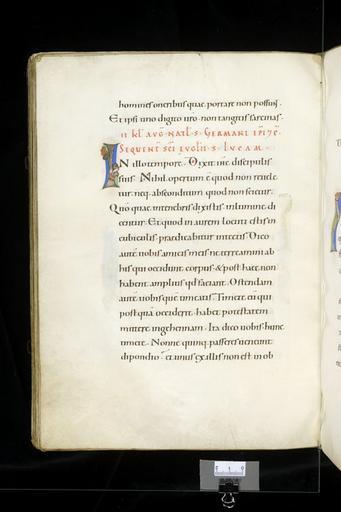 homines oneribus quae portare non possunt.
Et ipsi uno digito uro non tangitis sarcinas.
II kl AUG NATL S GERMANI EPI 7 C
SEQUENT SCI EVGLII S LUCAM
IN illo tempore. Dixit ihc discipulis
suis. Nihil opertum e quod non reuele
tur. neq. absconditum quod non sciatur.
Quo quae in tenebris dixistis. in lumine di
centur. Et quod in aurem locuti estis in
cubiculis. praedicabitur in tectis. Dico
aute uobis amicis meis ne terreamini ab
his qui occidunt corpus. & post haec non
habent amplius qd faciant. Ostendam
aute uobis que timeatis. Timete eu qui
postqua occiderit. habet potestatem
mittere in gehennam. Ita dico uobis. hunc
timete. Nonne quinq. passeres ueneunt
dipondio. et unus ex illis non est in ob